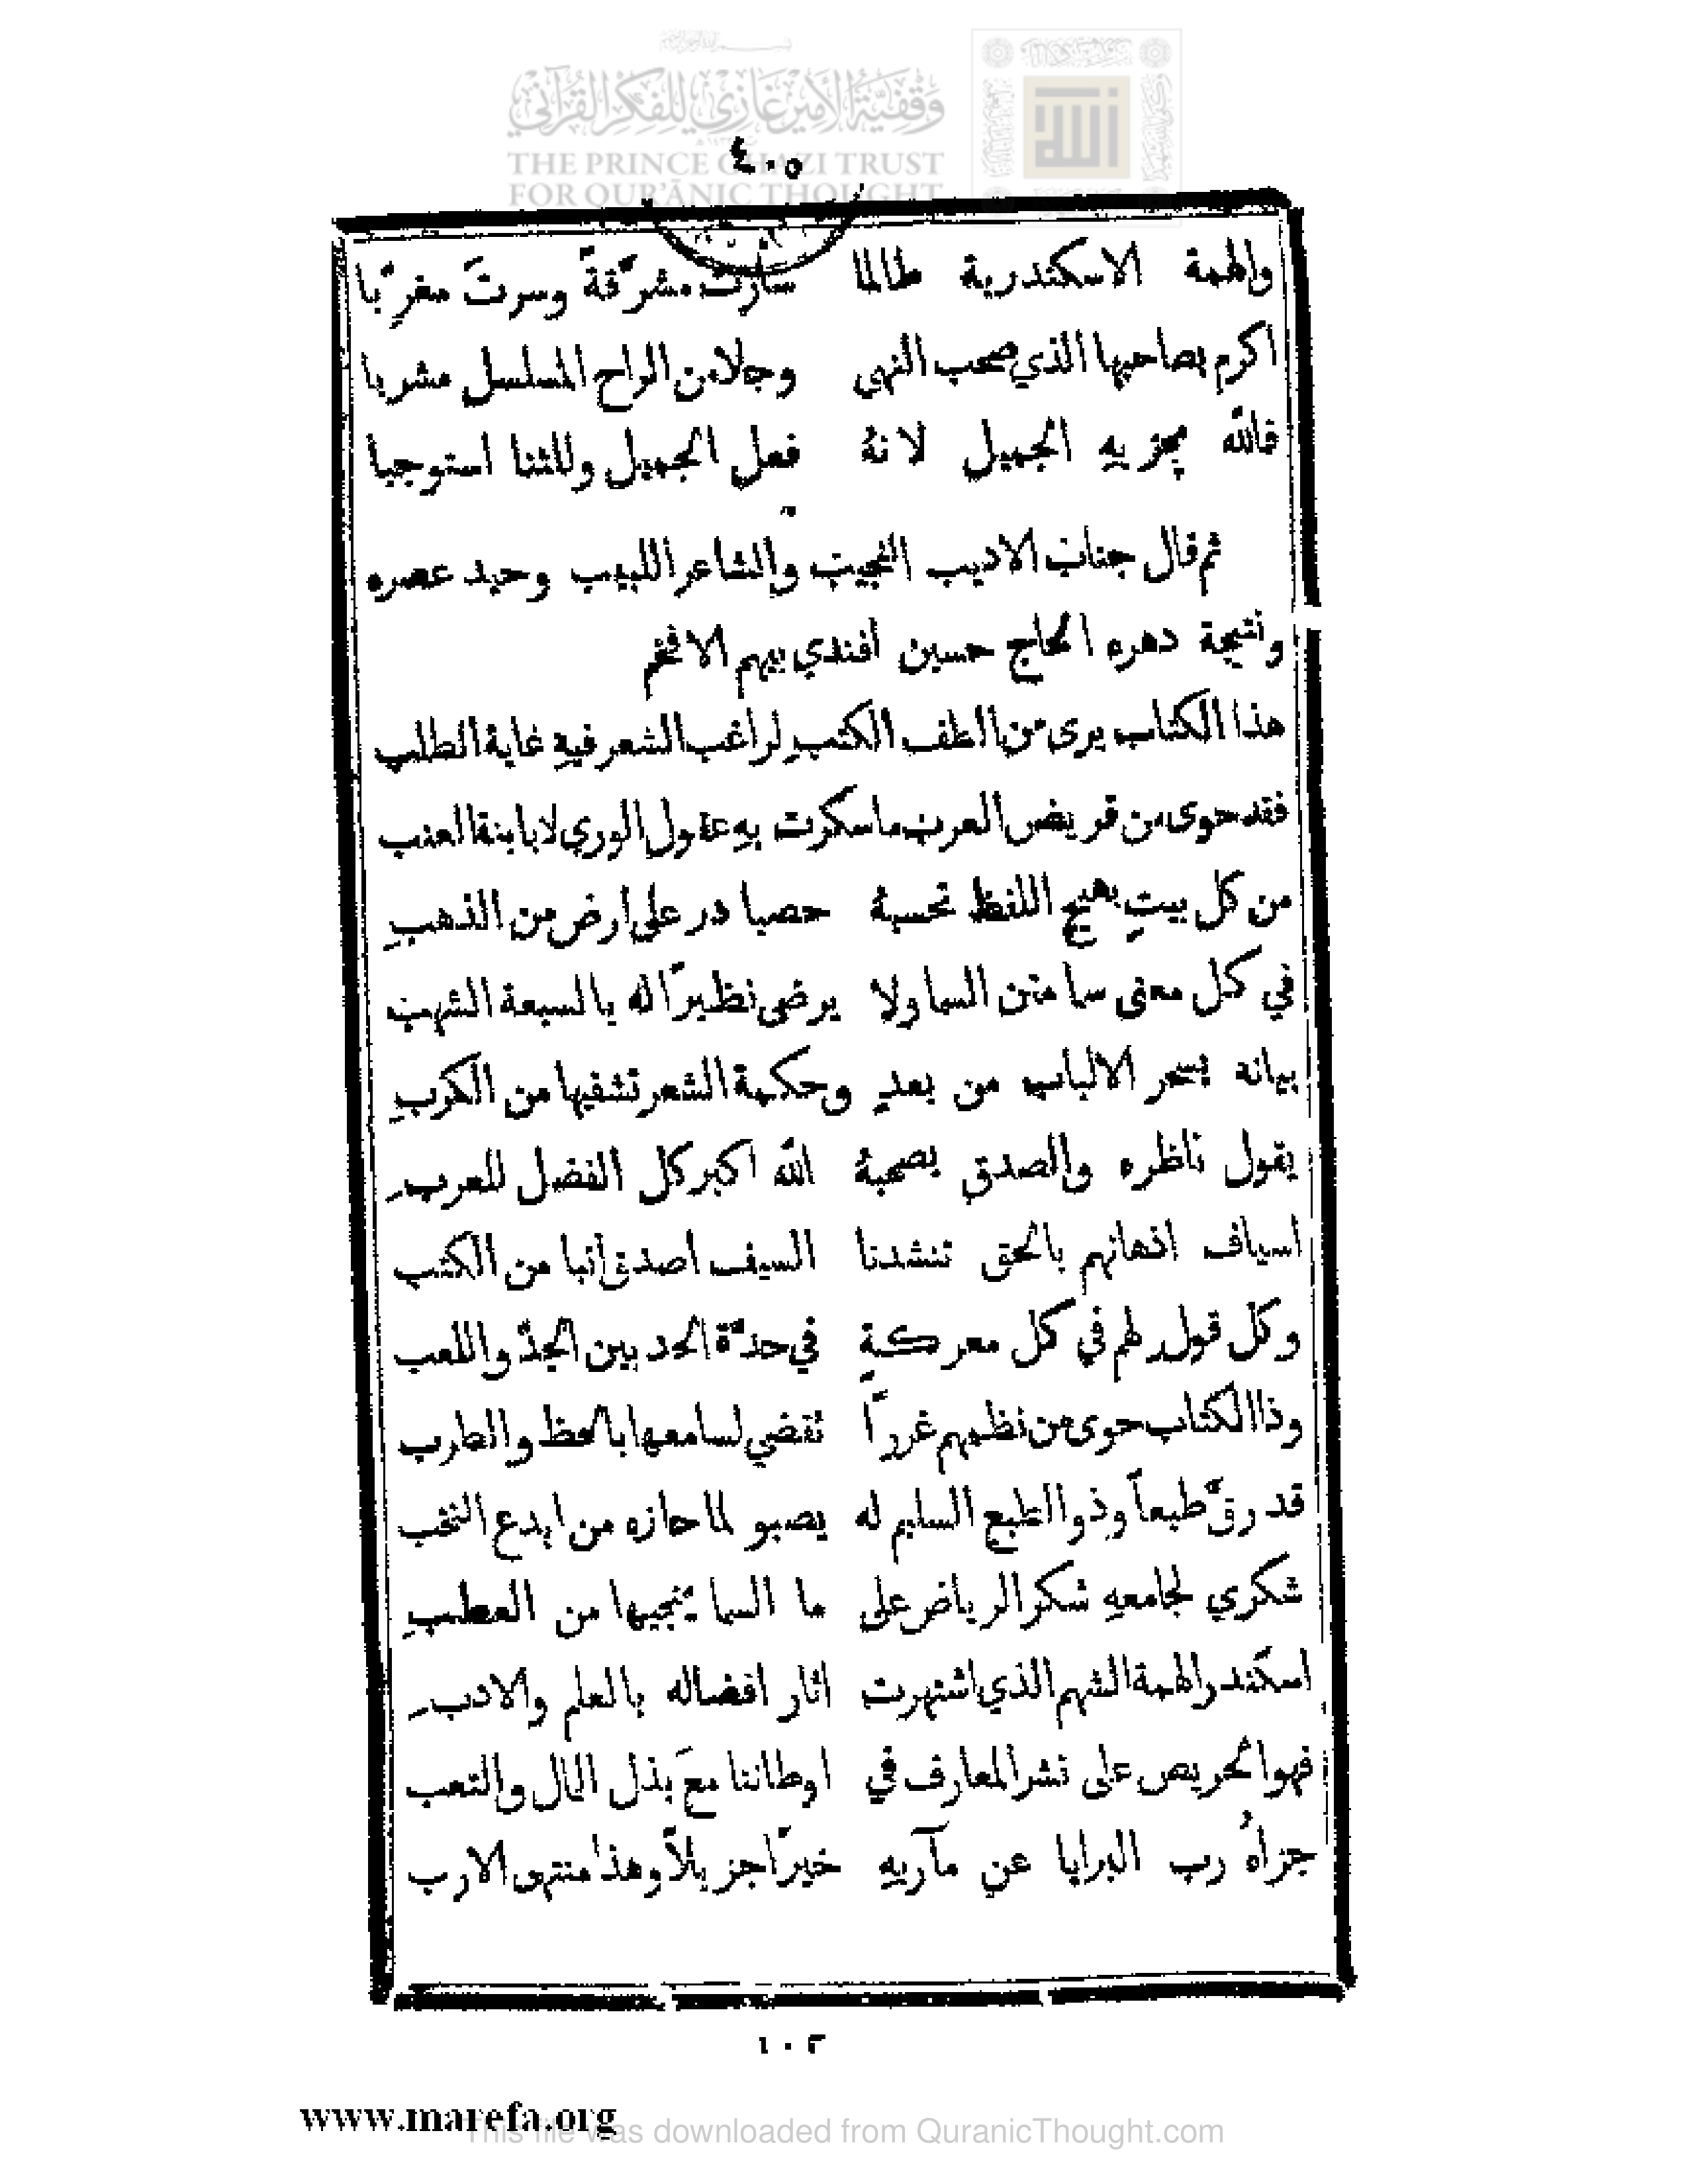 وقفية الأمير غازي للفكر القرآني
THE PRINCE GHAZI TRUST
FOR QUR'ĀNIC THOUGHT
٤٠٥
والهمة الاسكندرية طالما سارت مشرّقةً وسرتَ مغرِّبا
اكرم بصاحبها الذي صحب النهى وجلا من الراح المسلسل مشربا
فالله يجزيهِ الجميل لانهُ فعل الجميل وللثنا استوجبا
ثم قال جناب الاديب النجيب والشاعر اللبيب وحيد عصره
ونتيجة دهره الحاج حسين افندي بيهم الافخم
هذا الكتاب يرى من الطف الكتبِ لراغب الشعر فيهِ غاية الطلب
فقد حوى من قريض العرب ما سكرت بهِ عقول الورى لا بابنة العنب
من كل بيتٍ بهيج اللفظ تحسبهُ حصبا در على ارض من الذهبِ
في كل معنى سما متن السما ولا يرضى نظيرًا له بالسبعة الشهب
بيانه يسحر الالباب من بعدٍ وحكمة الشعر تشفيها من الكربِ
يقول ناظره والصدق يصحبهُ الله اكبر كل الفضل للعربِ
اسياف اذهانهم بالحق تنشدنا السيف اصدق انبا من الكتب
وكل قول لهم في كل معركةٍ في حدّة الحد بين الجدّ واللعب
وذا الكتاب حوى من نظمهم غررًا تقضي لسامعها بالحظ والطرب
قد رقّ طبعاً وذو الطبع السليم له يصبو لما حازه من ابدع النخب
شكري لجامعهِ شكر الرياض على ما السما ينجيها من العطبِ
اسكندر الهمة الشهم الذي اشتهرت اثار افضاله بالعلم والادبِ
فهو الحريص على نشر المعارف في اوطاننا معَ بذل المال والتعب
جزاهُ رب البرايا عن مآربهِ خيرًا جزيلاً وهذا منتهى الارب
١٠٢
www.marefa.org
This file was downloaded from QuranicThought.com